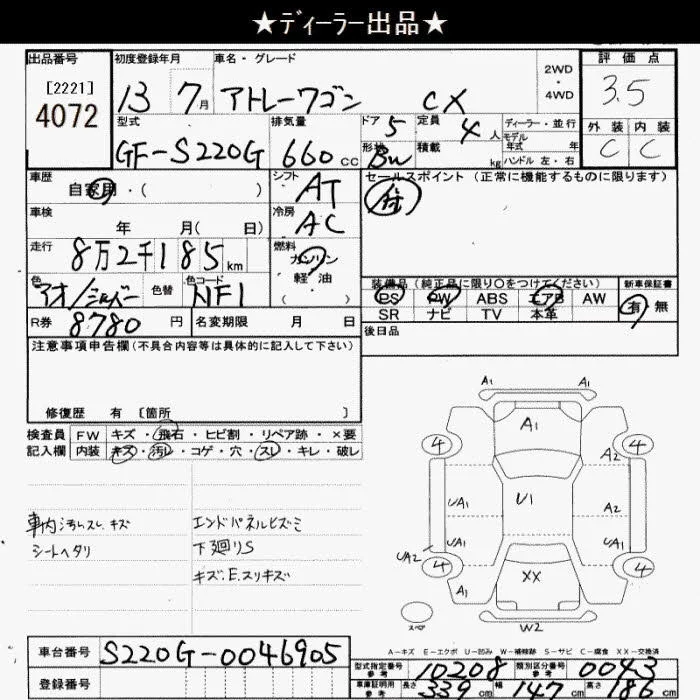 ★ディーラー出品★
出品番号
[2221]
4072
初度登録年月
13 7月
車名・グレード
アトレーワゴン CX
2WD
・
4WD
評価点
3.5
外装 内装
C C
型式
GF-S220G
排気量
660 cc
ドア 5
定員 4 人
形状 BW
積載 kg
ディーラー・並行
モデル
年式 年
ハンドル 左・右
車歴
自家用・( )
シフト
AT
車検
年 月( 日)
冷房
AC
走行
8万2千185 km
燃料
ガソリン
軽油
( )
色
アオ/シルバー
色替
色コード
NF1
R券
8780 円
名変期限 月 日
セールスポイント (正常に機能するものに限ります)
装備品(純正品に限り○をつけてください)
PS PW ABS エアB AW
SR ナビ TV 本革
新車保証書
有 無
後日品
注意事項申告欄(不具合内容等は具体的に記入して下さい)
修復歴 有 〔箇所 〕
検査員
記入欄
FW キズ・飛石・ヒビ割・リペア跡・×要
内装 キズ・汚レ・コゲ・穴・スレ・キレ・破レ
車内汚レスレキズ
シートヘタリ
エンドパネルヒズミ
下廻りS
キズ.E.スリキズ
A1 A1
A1
4 4
A2
A2
UA1 U1
UA1 UA1
UA2
4 4
XX
A1 A1
スペア
W2
A-キズ E-エクボ U-凹み W-補修跡 S-サビ C-腐食 XX-交換済
車台番号
S220G-0046905
登録番号
型式指定番号
参考
10208
類別区分番号
参考
0043
車庫証明用
参考
長さ 339 cm
幅 147 cm
高さ 187 cm